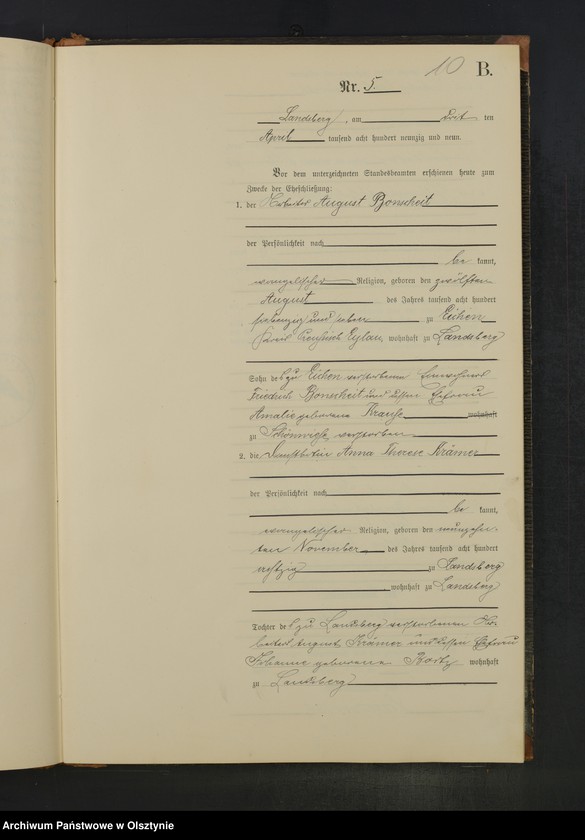 10 B.
Nr. 5.
Landsberg, am drit ten
April tausend acht hundert neunzig und neun.
Vor dem unterzeichneten Standesbeamten erschienen heute zum
Zwecke der Eheschließung:
1. der Arbeiter August Bonscheit
der Persönlichkeit nach
be kannt,
evangelischer Religion, geboren den zwölften
August des Jahres tausend acht hundert
siebenzig und sieben zu Eichen
Kreis Preußisch Eylau, wohnhaft zu Landsberg
Sohn des zu Eichen verstorbenen Einwohners
Friedrich Bonscheit und dessen Ehefrau
Amalie geborene Krause wohnhaft
zu Schönwiese verstorben
2. die Anna Therese Krämer
der Persönlichkeit nach
be kannt,
evangelischer Religion, geboren den neunzehn
ten November des Jahres tausend acht hundert
achtzig zu Landsberg
wohnhaft zu Landsberg
Tochter des zu Landsberg verstorbenen Ar
beiters August Krämer und dessen Ehefrau
Johanne geborene wohnhaft
zu Landsberg
Archiwum Państwowe w Olsztynie